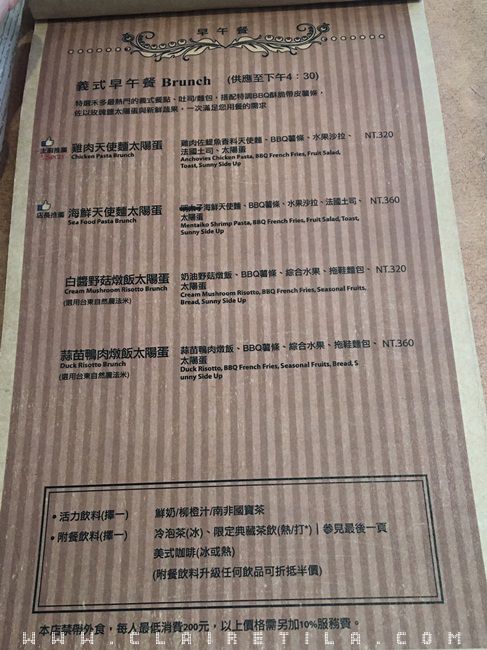 早午餐
義式早午餐 Brunch (供應至下午4：30)
特選禾多最熱門的義式餐點、吐司/麵包，搭配特調BBQ酥脆帶皮薯條，
佐以玫瑰鹽太陽蛋與新鮮蔬果，一次滿足您用餐的需求
主廚推薦 雞肉天使麵太陽蛋 雞肉佐鯷魚香料天使麵、BBQ薯條、水果沙拉、 NT.320
法國土司、太陽蛋
Chicken Pasta Brunch Anchovies Chicken Pasta, BBQ French Fries, Fruit Salad,
Toast, Sunny Side Up
店長推薦 海鮮天使麵太陽蛋 海鮮天使麵、BBQ薯條、水果沙拉、法國土司、 NT.360
太陽蛋
Sea Food Pasta Brunch Mentaiko Shrimp Pasta, BBQ French Fries, Fruit Salad, Toast,
Sunny Side Up
白醬野菇燉飯太陽蛋 奶油野菇燉飯、BBQ薯條、綜合水果、拖鞋麵包、 NT.320
太陽蛋
Cream Mushroom Risotto Brunch Cream Mushroom Risotto, BBQ French Fries, Seasonal Fruits,
(選用台東自然農法米) Bread, Sunny Side Up
蒜苗鴨肉燉飯太陽蛋 蒜苗鴨肉燉飯、BBQ薯條、綜合水果、拖鞋麵包、 NT.360
太陽蛋
Duck Risotto Brunch Duck Risotto, BBQ French Fries, Seasonal Fruits, Bread, S
(選用台東自然農法米) unny Side Up
• 活力飲料(擇一) 鮮奶/柳橙汁/南非國寶茶
• 附餐飲料(擇一) 冷泡茶(冰)、限定典藏茶飲(熱/打*)｜參見最後一頁
美式咖啡(冰或熱)
(附餐飲料升級任何飲品可折抵半價)
本店禁帶外食，每人最低消費200元，以上價格需另加10%服務費。
WWW.CLAIRETILA.COM